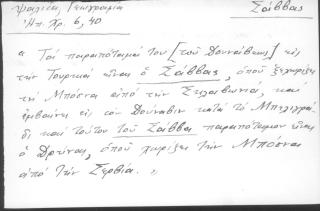 Ψαλίδα, Γεωγραφία
Ἠπ. Χρ. 6, 40
Σάββας
« Τοί παραπόταμοι του [τοῦ Δουνάβεως] εἰς
τήν Τουρκιά εἶναι ὁ Σάββας, ὁποῦ ξεχωρίζει
τή Μπόσνα ἀπό την Σκλαβωνιά, καί
ἐμβαίνει εἰς τον Δούναβιν κατά τό Μπελιγρά-
δι καί τούτου τοῦ Σάββα παραπόταμος εἶναι
ὁ Δρύνας, ὁποῦ χωρίζει τήν Μπόσνα
ἀπό τήν Σερβία. »